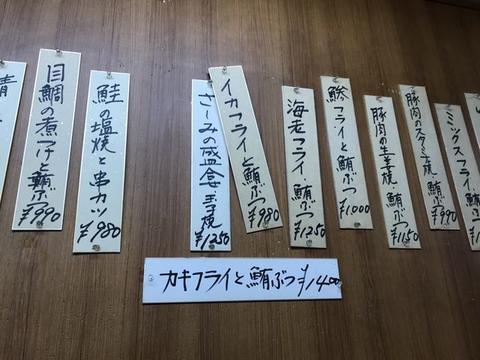 ミックスフライ・鮪
豚肉のスタミナ焼・鮪ぶつ
¥990
豚肉の生姜焼・鮪ぶつ
¥1150
鯵フライと鮪ぶつ
¥1000
海老フライ・鮪ぶつ
¥1250
イカフライと鮪ぶつ
¥980
さしみの盛合・玉子焼
¥1250
鮭の塩焼と串カツ
¥980
目鯛の煮つけと鮪ぶつ
¥990
カキフライと鮪ぶつ ¥1400